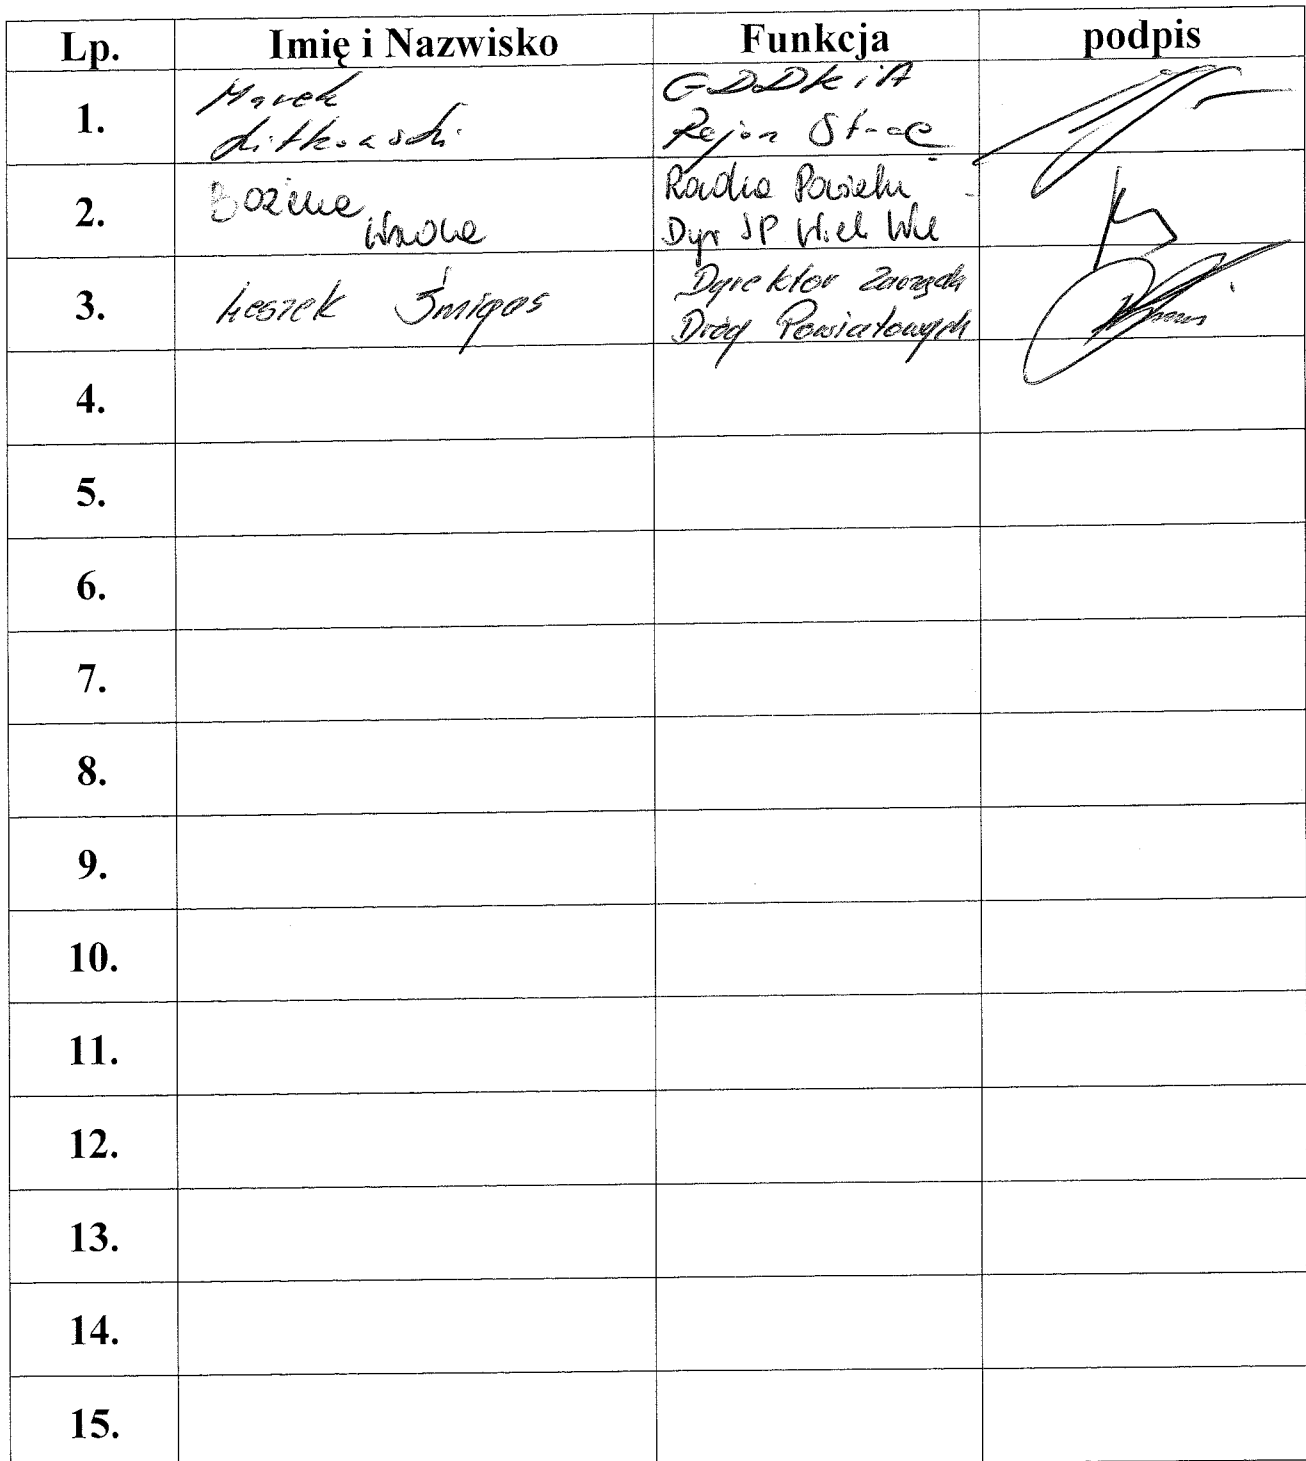 Lp. Imię i Nazwisko Funkcja podpis
1. Marek GDDKiA
Rejon
2. Bożena Radna
Dyr SP Wiel
3. Leszek Śmigas Dyrektor Zarządu
Dróg Powiatowych
4.
5.
6.
7.
8.
9.
10.
11.
12.
13.
14.
15.